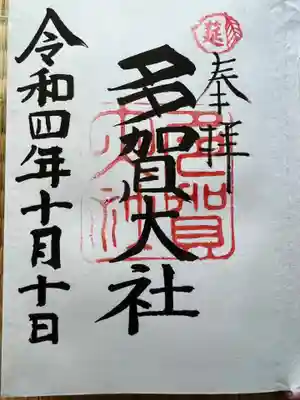 奉拝
多賀大社
多賀大社
令和四年十月十日